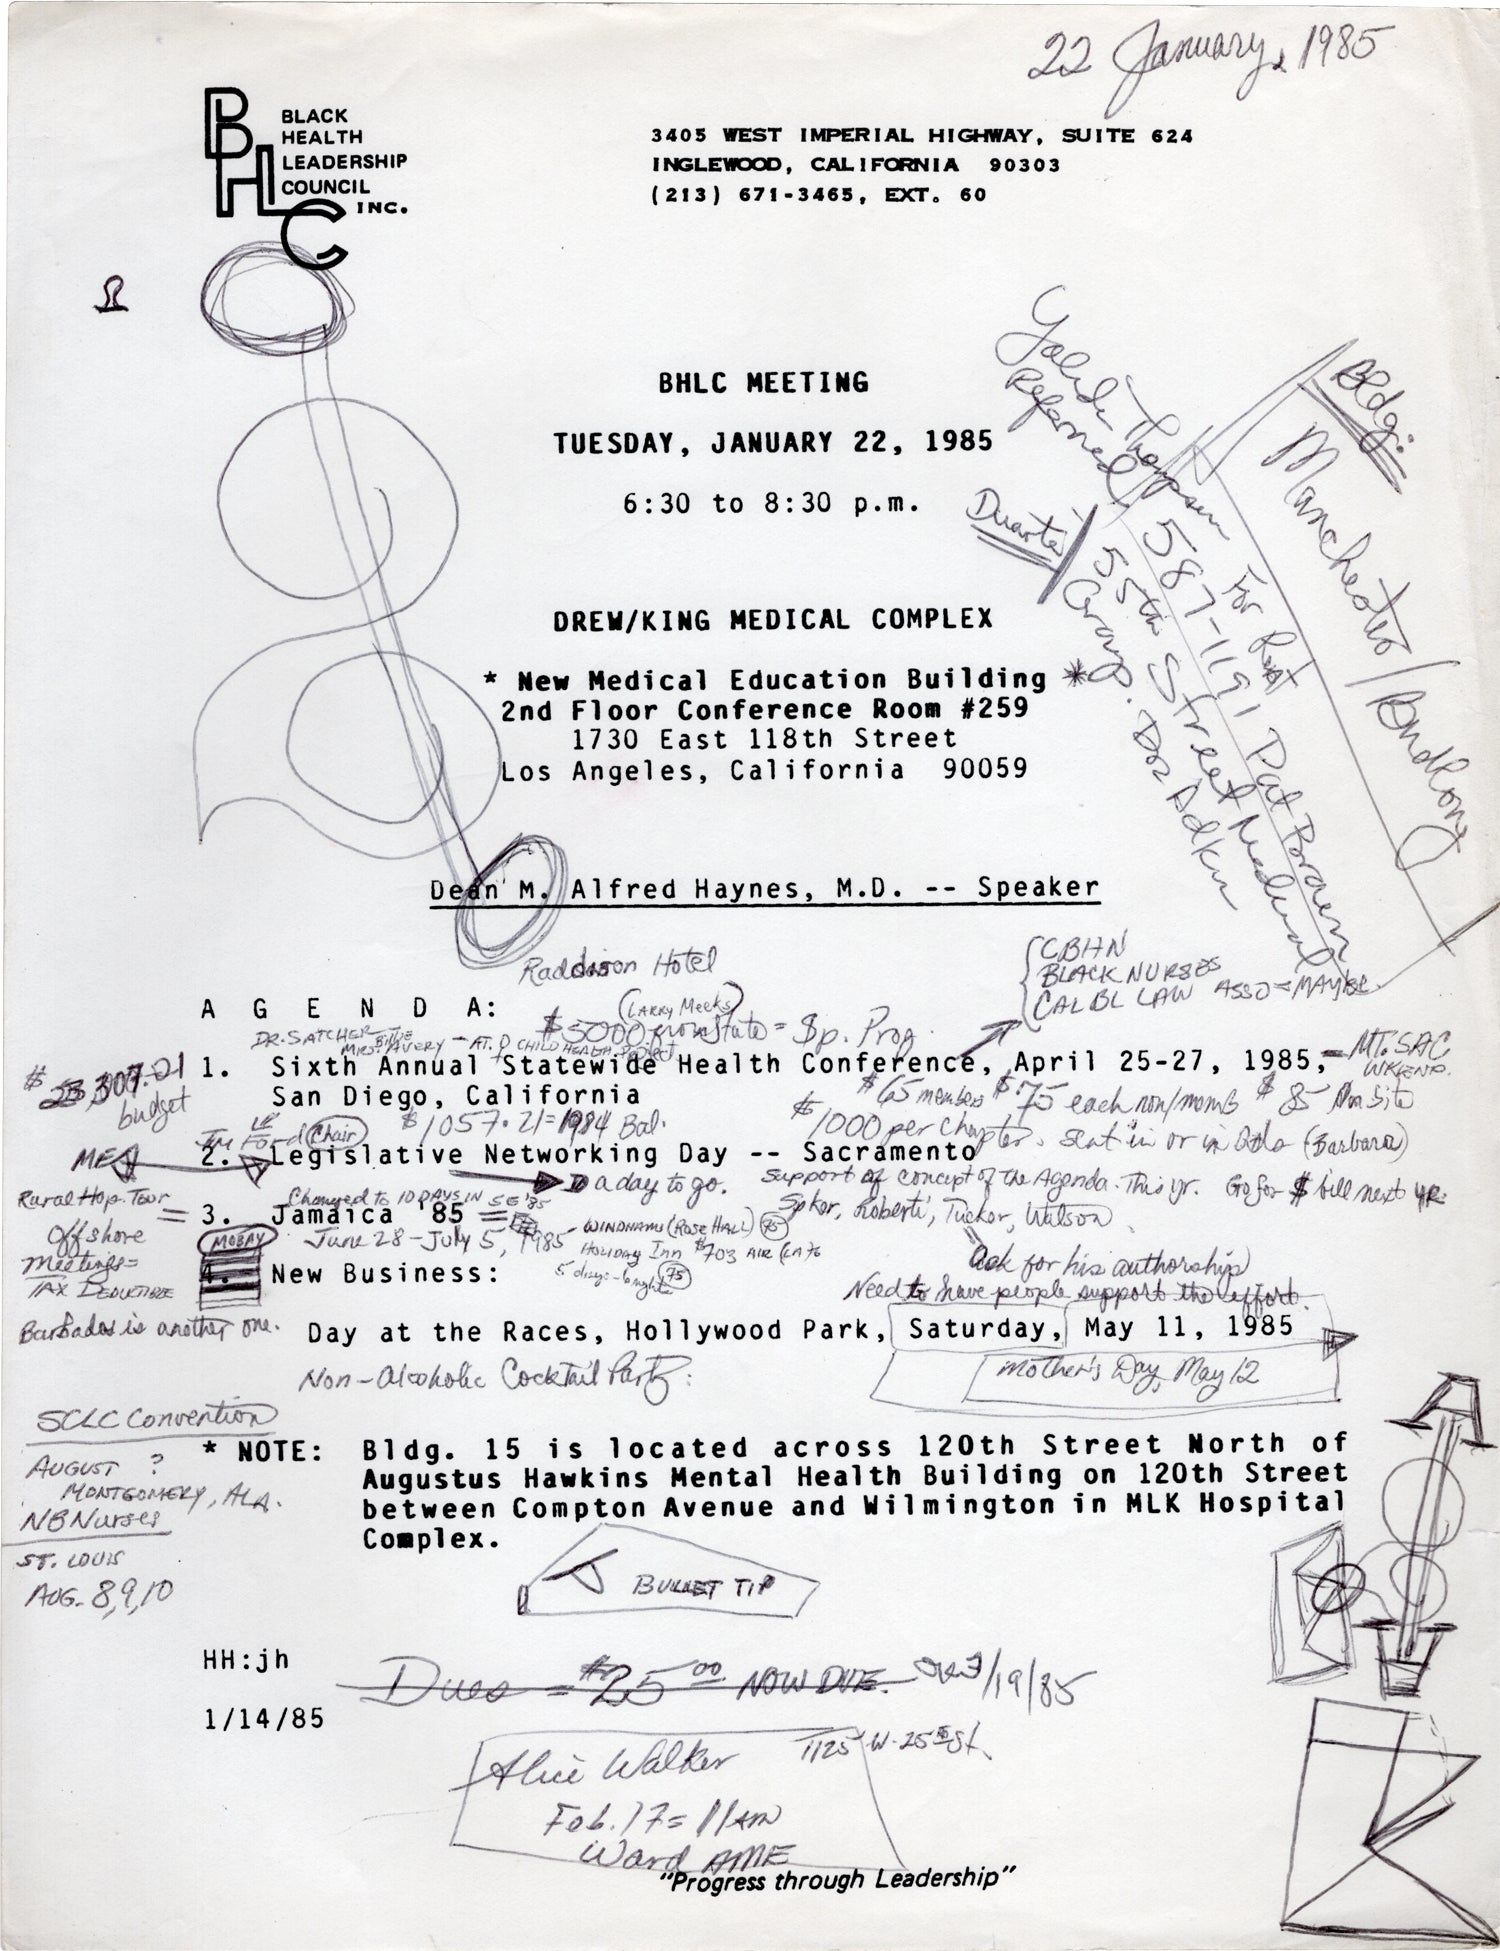 22 January, 1985
BLACK
HEALTH
LEADERSHIP
COUNCIL
INC.
BHLC
3405 WEST IMPERIAL HIGHWAY, SUITE 624
INGLEWOOD, CALIFORNIA 90303
(213) 671-3465, EXT. 60
BHLC MEETING
TUESDAY, JANUARY 22, 1985
6:30 to 8:30 p.m.
Bldg:
Manchester/
Thompson For Rent
Referred
587-1191 Pat Brown
Duarte
55th Street Medical
Group. Doz Adkin
DREW/KING MEDICAL COMPLEX
* New Medical Education Building *
2nd Floor Conference Room #259
1730 East 118th Street
Los Angeles, California 90059
Dean M. Alfred Haynes, M.D. -- Speaker
Raddison Hotel
CBHN
BLACK NURSES
CAL BL LAW ASSO = MAYBE
A G E N D A:
(LARRY MEEKS)
$5000 from State = Sp. Prog.
DR. SATCHER
MRS. AVERY - AT. CHILD HEALTH Project
1. Sixth Annual Statewide Health Conference, April 25-27, 1985,
San Diego, California
MT. SAC
WKEND.
307.01
budget
$65 members $75 each non/memb $85 on Site
$1057.21 = 1984 Bal.
$1000 per chapter. sent in or in Qtls (Barbara)
Jim Ford Chair
ME
2. Legislative Networking Day -- Sacramento
a day to go. Support of concept of the Agenda. This yr. Go for $ bill next yr.
Rural Hop. Tour
Changed to 10 DAYS IN
3. Jamaica '85
Spker, Roberti, Tucker, Watson
MOBAY
June 28 - July 5, 1985 - WINDHAMS (ROSE HALL) 75
Holiday Inn $703 AIR
Offshore
Meetings =
TAX DEDUCTIBLE
Barbados is another one.
4. New Business:
5 days - 6 nights 75
Ask for his authorship
Need to have people support the effort.
Day at the Races, Hollywood Park, Saturday, May 11, 1985
Non-Alcoholic Cocktail Party:
Mother's Day, May 12
SCLC Convention
AUGUST ?
MONTGOMERY, ALA.
NB Nurses
ST. LOUIS
AUG. 8,9,10
* NOTE: Bldg. 15 is located across 120th Street North of
Augustus Hawkins Mental Health Building on 120th Street
between Compton Avenue and Wilmington in MLK Hospital
Complex.
BULLET TIP
HH:jh
Dues = $25.00 NOW DUE. /19/85
1/14/85
Alice Walker 1125 W. 25th St.
Feb. 17 = 11 AM
Ward AME
"Progress through Leadership"